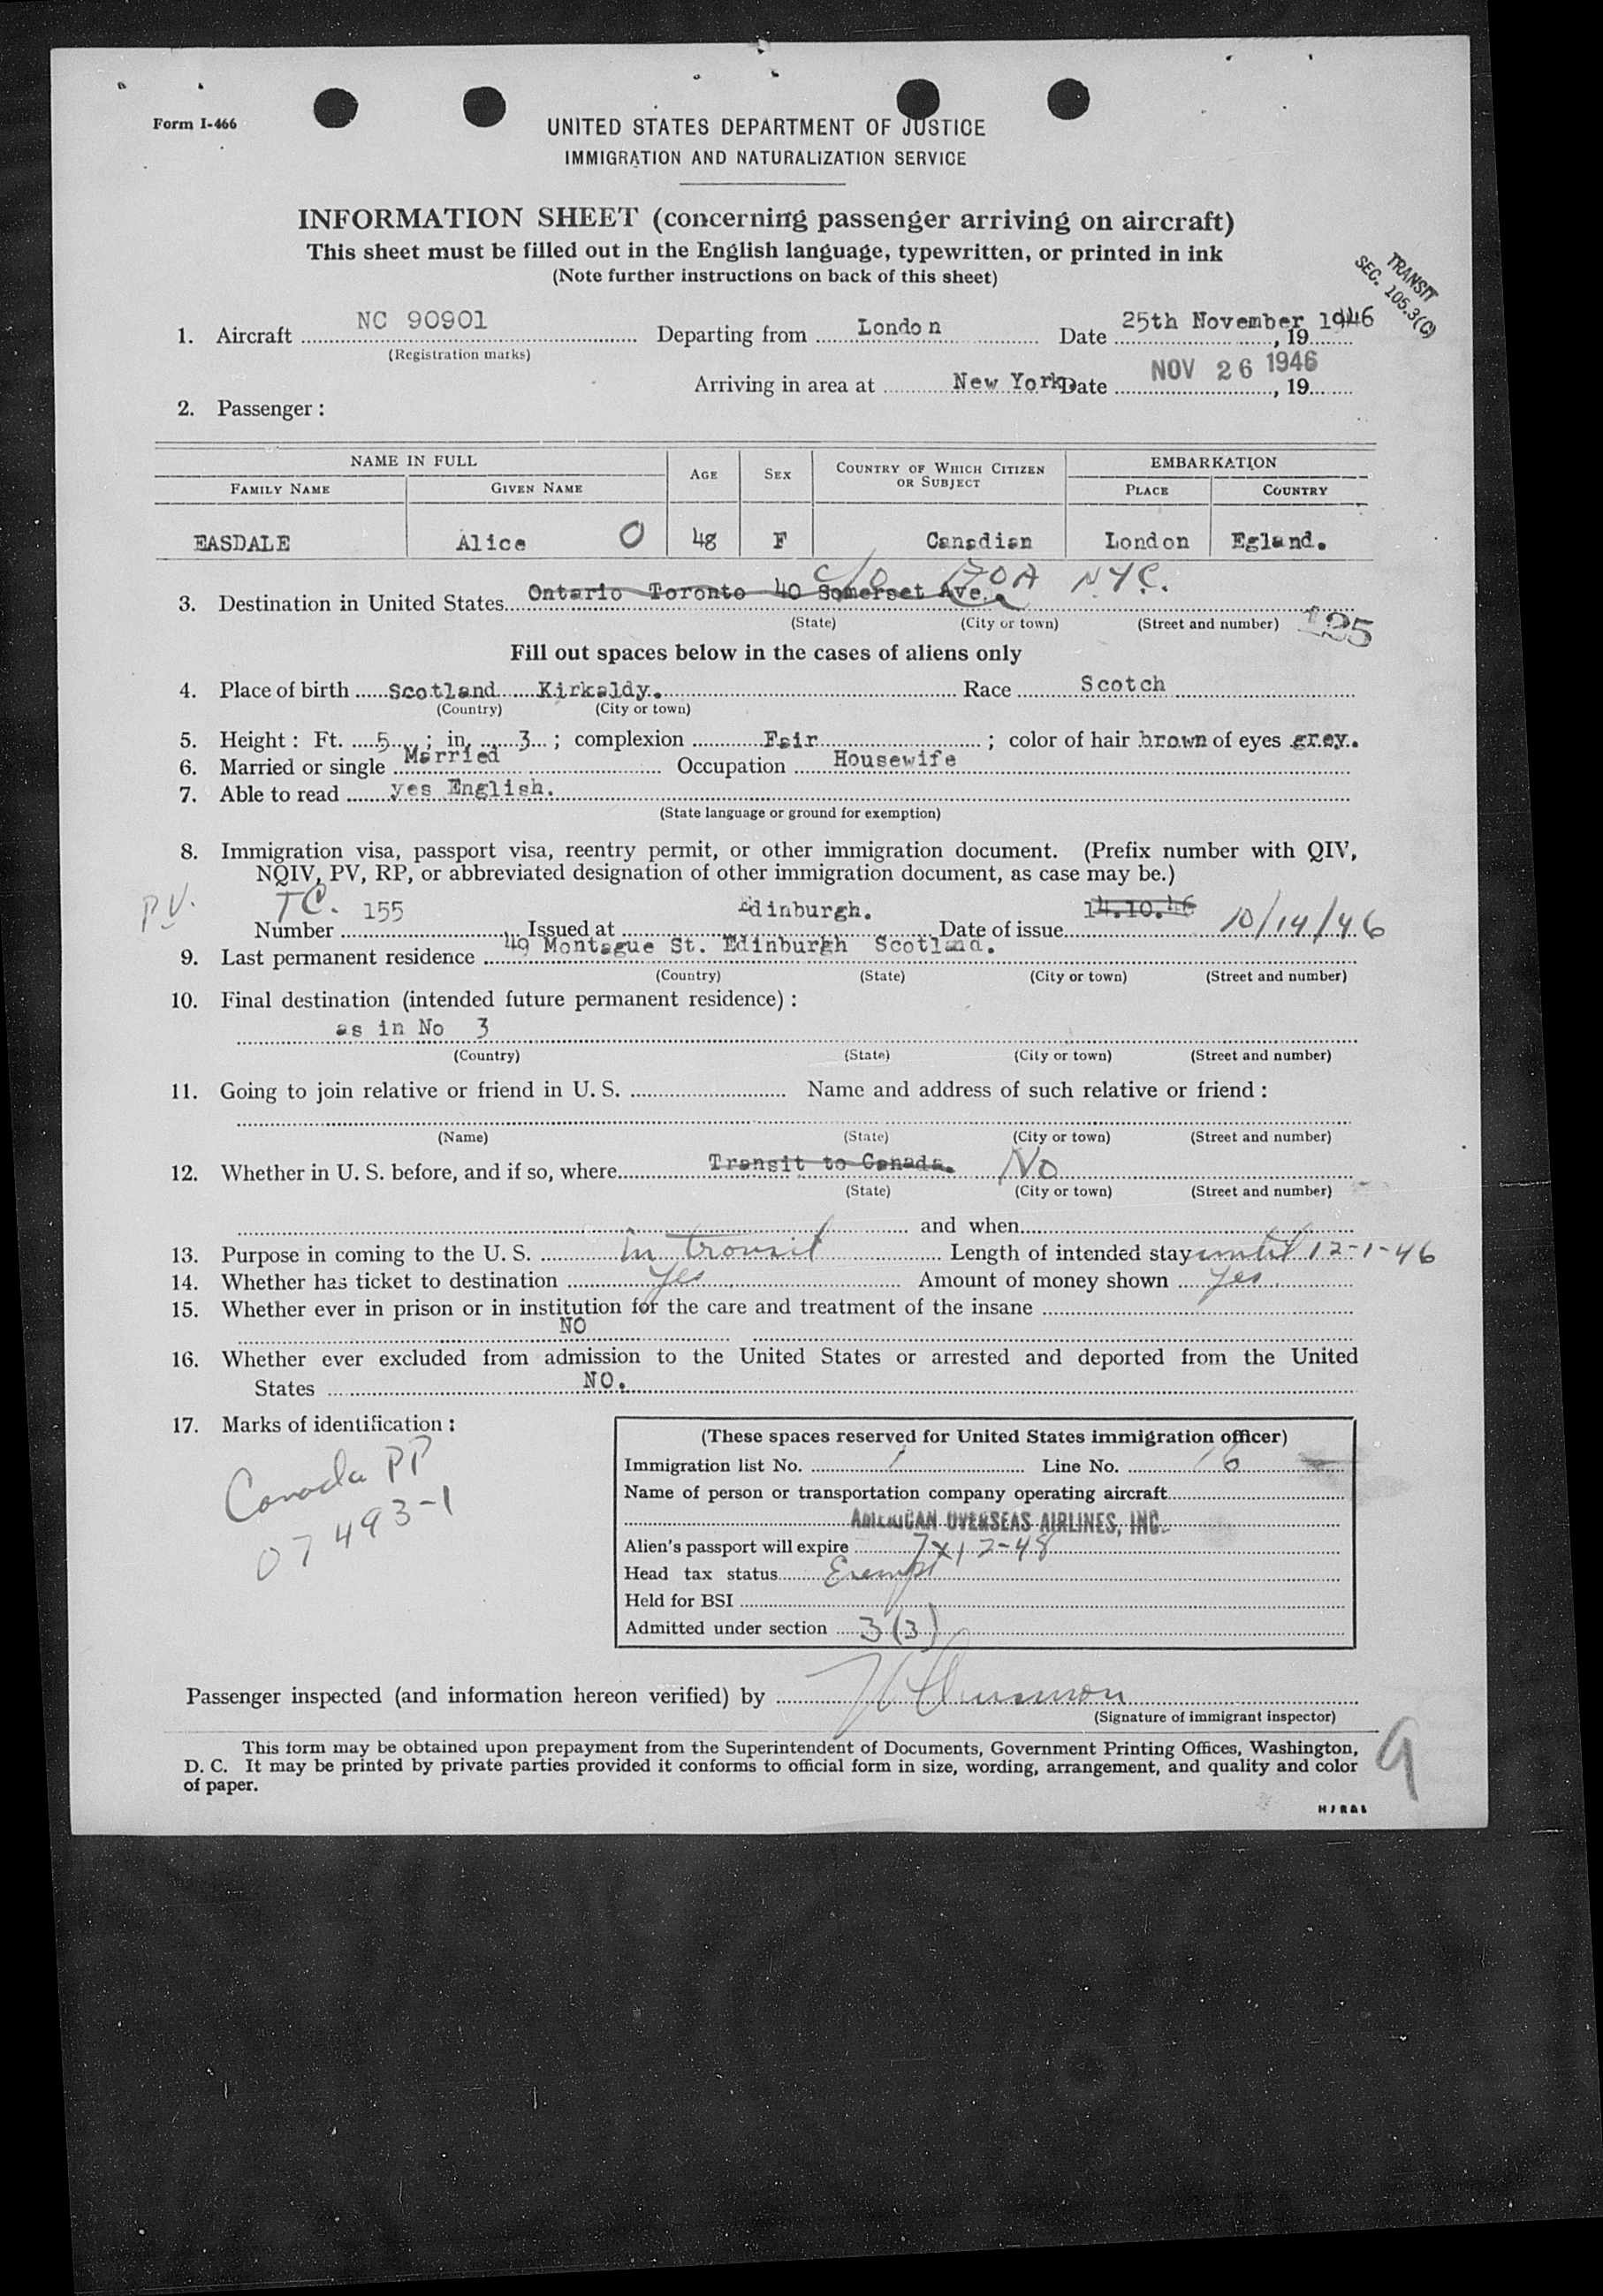 Form I-466
UNITED STATES DEPARTMENT OF JUSTICE
IMMIGRATION AND NATURALIZATION SERVICE
INFORMATION SHEET (concerning passenger arriving on aircraft)
This sheet must be filled out in the English language, typewritten, or printed in ink
(Note further instructions on back of this sheet)
TRANSIT
SEC. 105.3(C)
1. Aircraft NC 90901 Departing from London Date 25th November 1946, 19
(Registration marks)
Arriving in area at New York. Date NOV 26 1946, 19
2. Passenger:
NAME IN FULL AGE SEX COUNTRY OF WHICH CITIZEN OR SUBJECT EMBARKATION
FAMILY NAME GIVEN NAME PLACE COUNTRY
EASDALE Alice O 48 F Canadian London Egland.
c/o NYC.
3. Destination in United States Ontario Toronto 40 Somerset Ave.
(State) (City or town) (Street and number)
Fill out spaces below in the cases of aliens only
4. Place of birth Scotland Kirkaldy. Race Scotch
(Country) (City or town)
5. Height: Ft. 5; in. 3; complexion Fair; color of hair brown of eyes grey.
6. Married or single Married Occupation Housewife
7. Able to read yes English.
(State language or ground for exemption)
8. Immigration visa, passport visa, reentry permit, or other immigration document. (Prefix number with QIV,
NQIV, PV, RP, or abbreviated designation of other immigration document, as case may be.)
P.V. TC. 155 Edinburgh. 14.10.46 10/14/46
Number Issued at Date of issue
9. Last permanent residence 49 Montague St. Edinburgh Scotland.
(Country) (State) (City or town) (Street and number)
10. Final destination (intended future permanent residence):
as in No 3
(Country) (State) (City or town) (Street and number)
11. Going to join relative or friend in U. S. Name and address of such relative or friend:
(Name) (State) (City or town) (Street and number)
12. Whether in U. S. before, and if so, where Transit to Canada. No
(State) (City or town) (Street and number)
and when
13. Purpose in coming to the U. S. in transit Length of intended stay until 12-1-46
14. Whether has ticket to destination Yes Amount of money shown Yes.
15. Whether ever in prison or in institution for the care and treatment of the insane
NO
16. Whether ever excluded from admission to the United States or arrested and deported from the United
States NO.
17. Marks of identification:
Canada PP
07493-1
(These spaces reserved for United States immigration officer)
Immigration list No. 1 Line No. 16
Name of person or transportation company operating aircraft
AMERICAN OVERSEAS AIRLINES, INC.
Alien's passport will expire
Head tax status Exempt
Held for BSI
Admitted under section 3(3)
Passenger inspected (and information hereon verified) by
(Signature of immigrant inspector)
This form may be obtained upon prepayment from the Superintendent of Documents, Government Printing Offices, Washington,
D. C. It may be printed by private parties provided it conforms to official form in size, wording, arrangement, and quality and color
of paper.
9